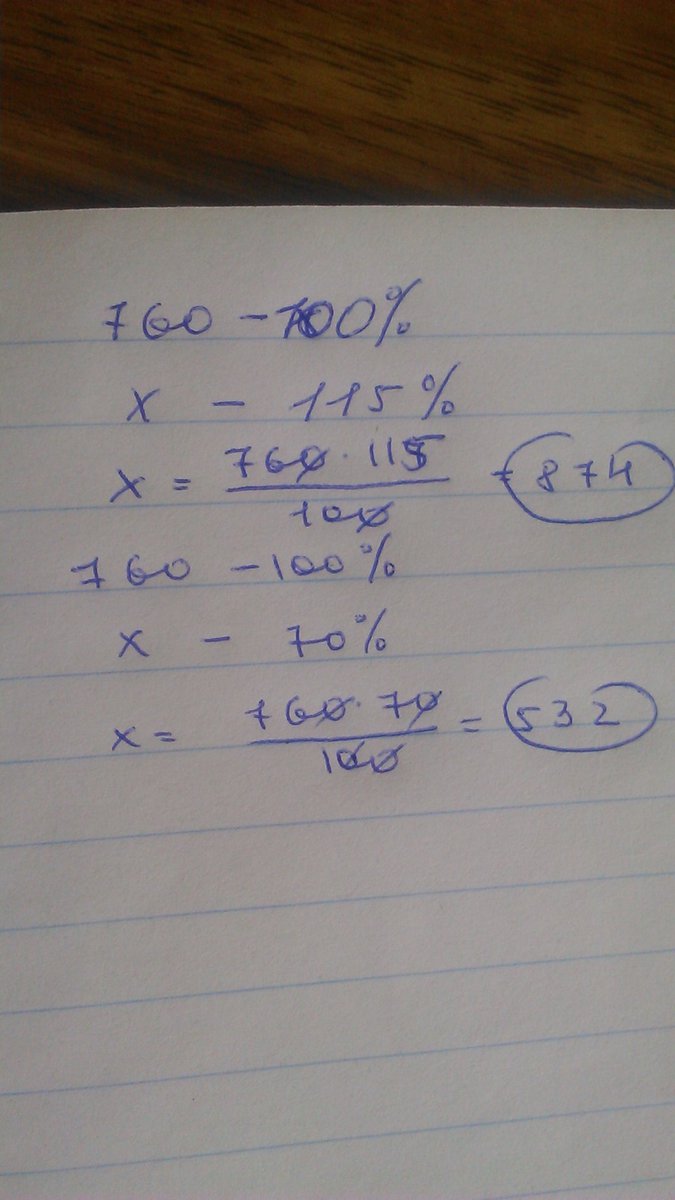 760 - 100%
x - 115%
x = 760 · 115 / 100 = 874
760 - 100%
x - 70%
x = 760 · 70 / 100 = 532